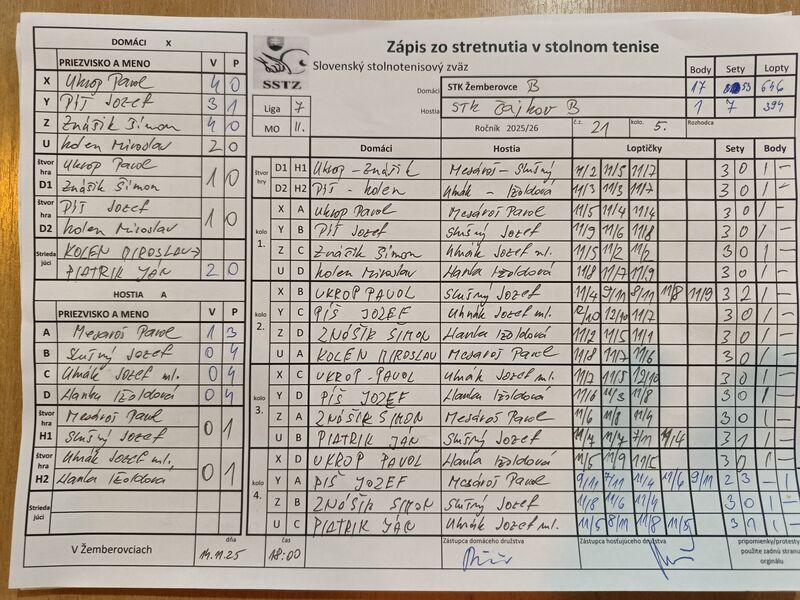 DOMÁCI X
PRIEZVISKO A MENO V P
X Ukrop Pavol 4 0
Y Píš Jozef 3 1
Z Znášik Šimon 4 0
U Kolen Miroslav 2 0
štvor hra D1 Ukrop Pavol 1 0
Znášik Šimon
štvor hra D2 Píš Jozef 1 0
Kolen Miroslav
Striedajúci KOLEN MIROSLAV →
PIATRIK JÁN 2 0
HOSTIA A
PRIEZVISKO A MENO V P
A Mesároš Pavol 1 3
B Slušný Jozef 0 4
C Uhnák Jozef ml. 0 4
D Hanka Izoldová 0 4
štvor hra H1 Mesároš Pavol 0 1
Slušný Jozef
štvor hra H2 Uhnák Jozef ml. 0 1
Hanka Izoldová
Striedajúci
V Žemberovciach
dňa 14.11.25
čas 18:00
SSTZ
Zápis zo stretnutia v stolnom tenise
Slovenský stolnotenisový zväz
Body Sety Lopty
Domáci STK Žemberovce B 17 53 646
Hostia STK Čajkov B 1 7 394
Liga 7
MO II.
Ročník 2025/26 č.z. 21 kolo. 5. Rozhodca
Domáci Hostia Loptičky Sety Body
štvor hry D1 H1 Ukrop - Znášik Mesároš - Slušný 11/2 11/5 11/7 3 0 1 -
D2 H2 Píš - Kolen Uhnák - Izoldová 11/3 11/3 11/7 3 0 1 -
kolo 1. X A Ukrop Pavol Mesároš Pavol 11/5 11/4 11/4 3 0 1 -
Y B Píš Jozef Slušný Jozef 11/9 11/6 11/8 3 0 1 -
Z C Znášik Šimon Uhnák Jozef ml. 11/5 11/2 11/2 3 0 1 -
U D Kolen Miroslav Hanka Izoldová 11/8 11/7 11/9 3 0 1 -
kolo 2. X B UKROP PAVOL Slušný Jozef 11/4 9/11 8/11 11/8 11/9 3 2 1 -
Y C PÍŠ JOZEF Uhnák Jozef ml. 12/10 12/10 11/7 3 0 1 -
Z D ZNÁŠIK ŠIMON Hanka Izoldová 11/2 11/5 11/1 3 0 1 -
U A KOLEN MIROSLAV Mesároš Pavol 11/8 11/7 11/6 3 0 1 -
kolo 3. X C UKROP PAVOL Uhnák Jozef ml. 11/7 11/5 12/10 3 0 1 -
Y D PÍŠ JOZEF Hanka Izoldová 11/6 11/3 11/8 3 0 1 -
Z A ZNÁŠIK ŠIMON Mesároš Pavol 11/6 11/8 11/4 3 0 1 -
U B PIATRIK JÁN Slušný Jozef 7/11 3 1 1 -
kolo 4. X D UKROP PAVOL Hanka Izoldová 11/5 11/9 11/5 3 0 1 -
Y A PÍŠ JOZEF Mesároš Pavol 9/11 7/11 11/4 11/6 9/11 2 3 - 1
Z B ZNÁŠIK ŠIMON Slušný Jozef 11/8 11/6 11/4 3 0 1 -
U C PIATRIK JÁN Uhnák Jozef ml. 11/5 8/11 11/8 11/5 3 1 1 -
Zástupca domáceho družstva
Zástupca hosťujúceho družstva
pripomienky/protesty
použite zadnú stranu
orginálu